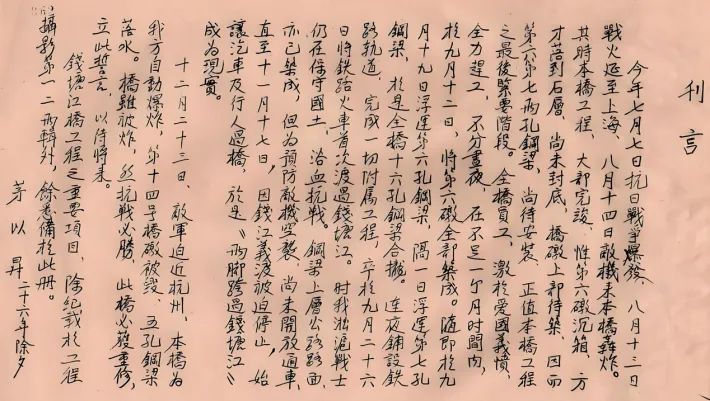 利言
今年七月七日抗日戰爭爆發，八月十三日
戰火延至上海，八月十四日敵機來本橋轟炸。
其時本橋工程，大部完竣，惟第六礅沉箱，方
才落到石層，尚未封底，橋礅上部待築，因而
第六第七兩孔鋼梁，尚待安裝，正值本橋工程
之最後緊要階段。全橋員工，激於愛國義憤，
全力趕工，不分晝夜，在不足一个月時間內，
於九月十二日，將第六礅全部築成。隨即於九
月十九日浮運第六孔鋼梁，隔一日浮運第七孔
鋼梁，於是全橋十六孔鋼梁合攏。連夜鋪設鉄
路軌道，完成一切附属工程，卒於九月二十六
日將鉄路火車首次渡過錢塘江。時我淞滬戰士
仍在保守國土，浴血抗戰。鋼梁上層公路路面
亦已築成，但為預防敵機空襲，尚未開放通車，
直至十一月十七日，因錢江義渡被迫停止，始
讓汽車及行人過橋，於是《兩腳跨過錢塘江》
成為現實。
十二月二十三日，敵軍迫近杭州，本橋為
我方自動爆炸，第十四号橋礅被毀，五孔鋼梁
落水。橋雖被炸，然抗戰必勝，此橋必獲重修，
立此誓言，以待將來。
錢塘江橋工程之重要項目，除紀載於工程
攝影第一二兩輯外，餘悉備於此冊。
茅以昇 二十六年除夕